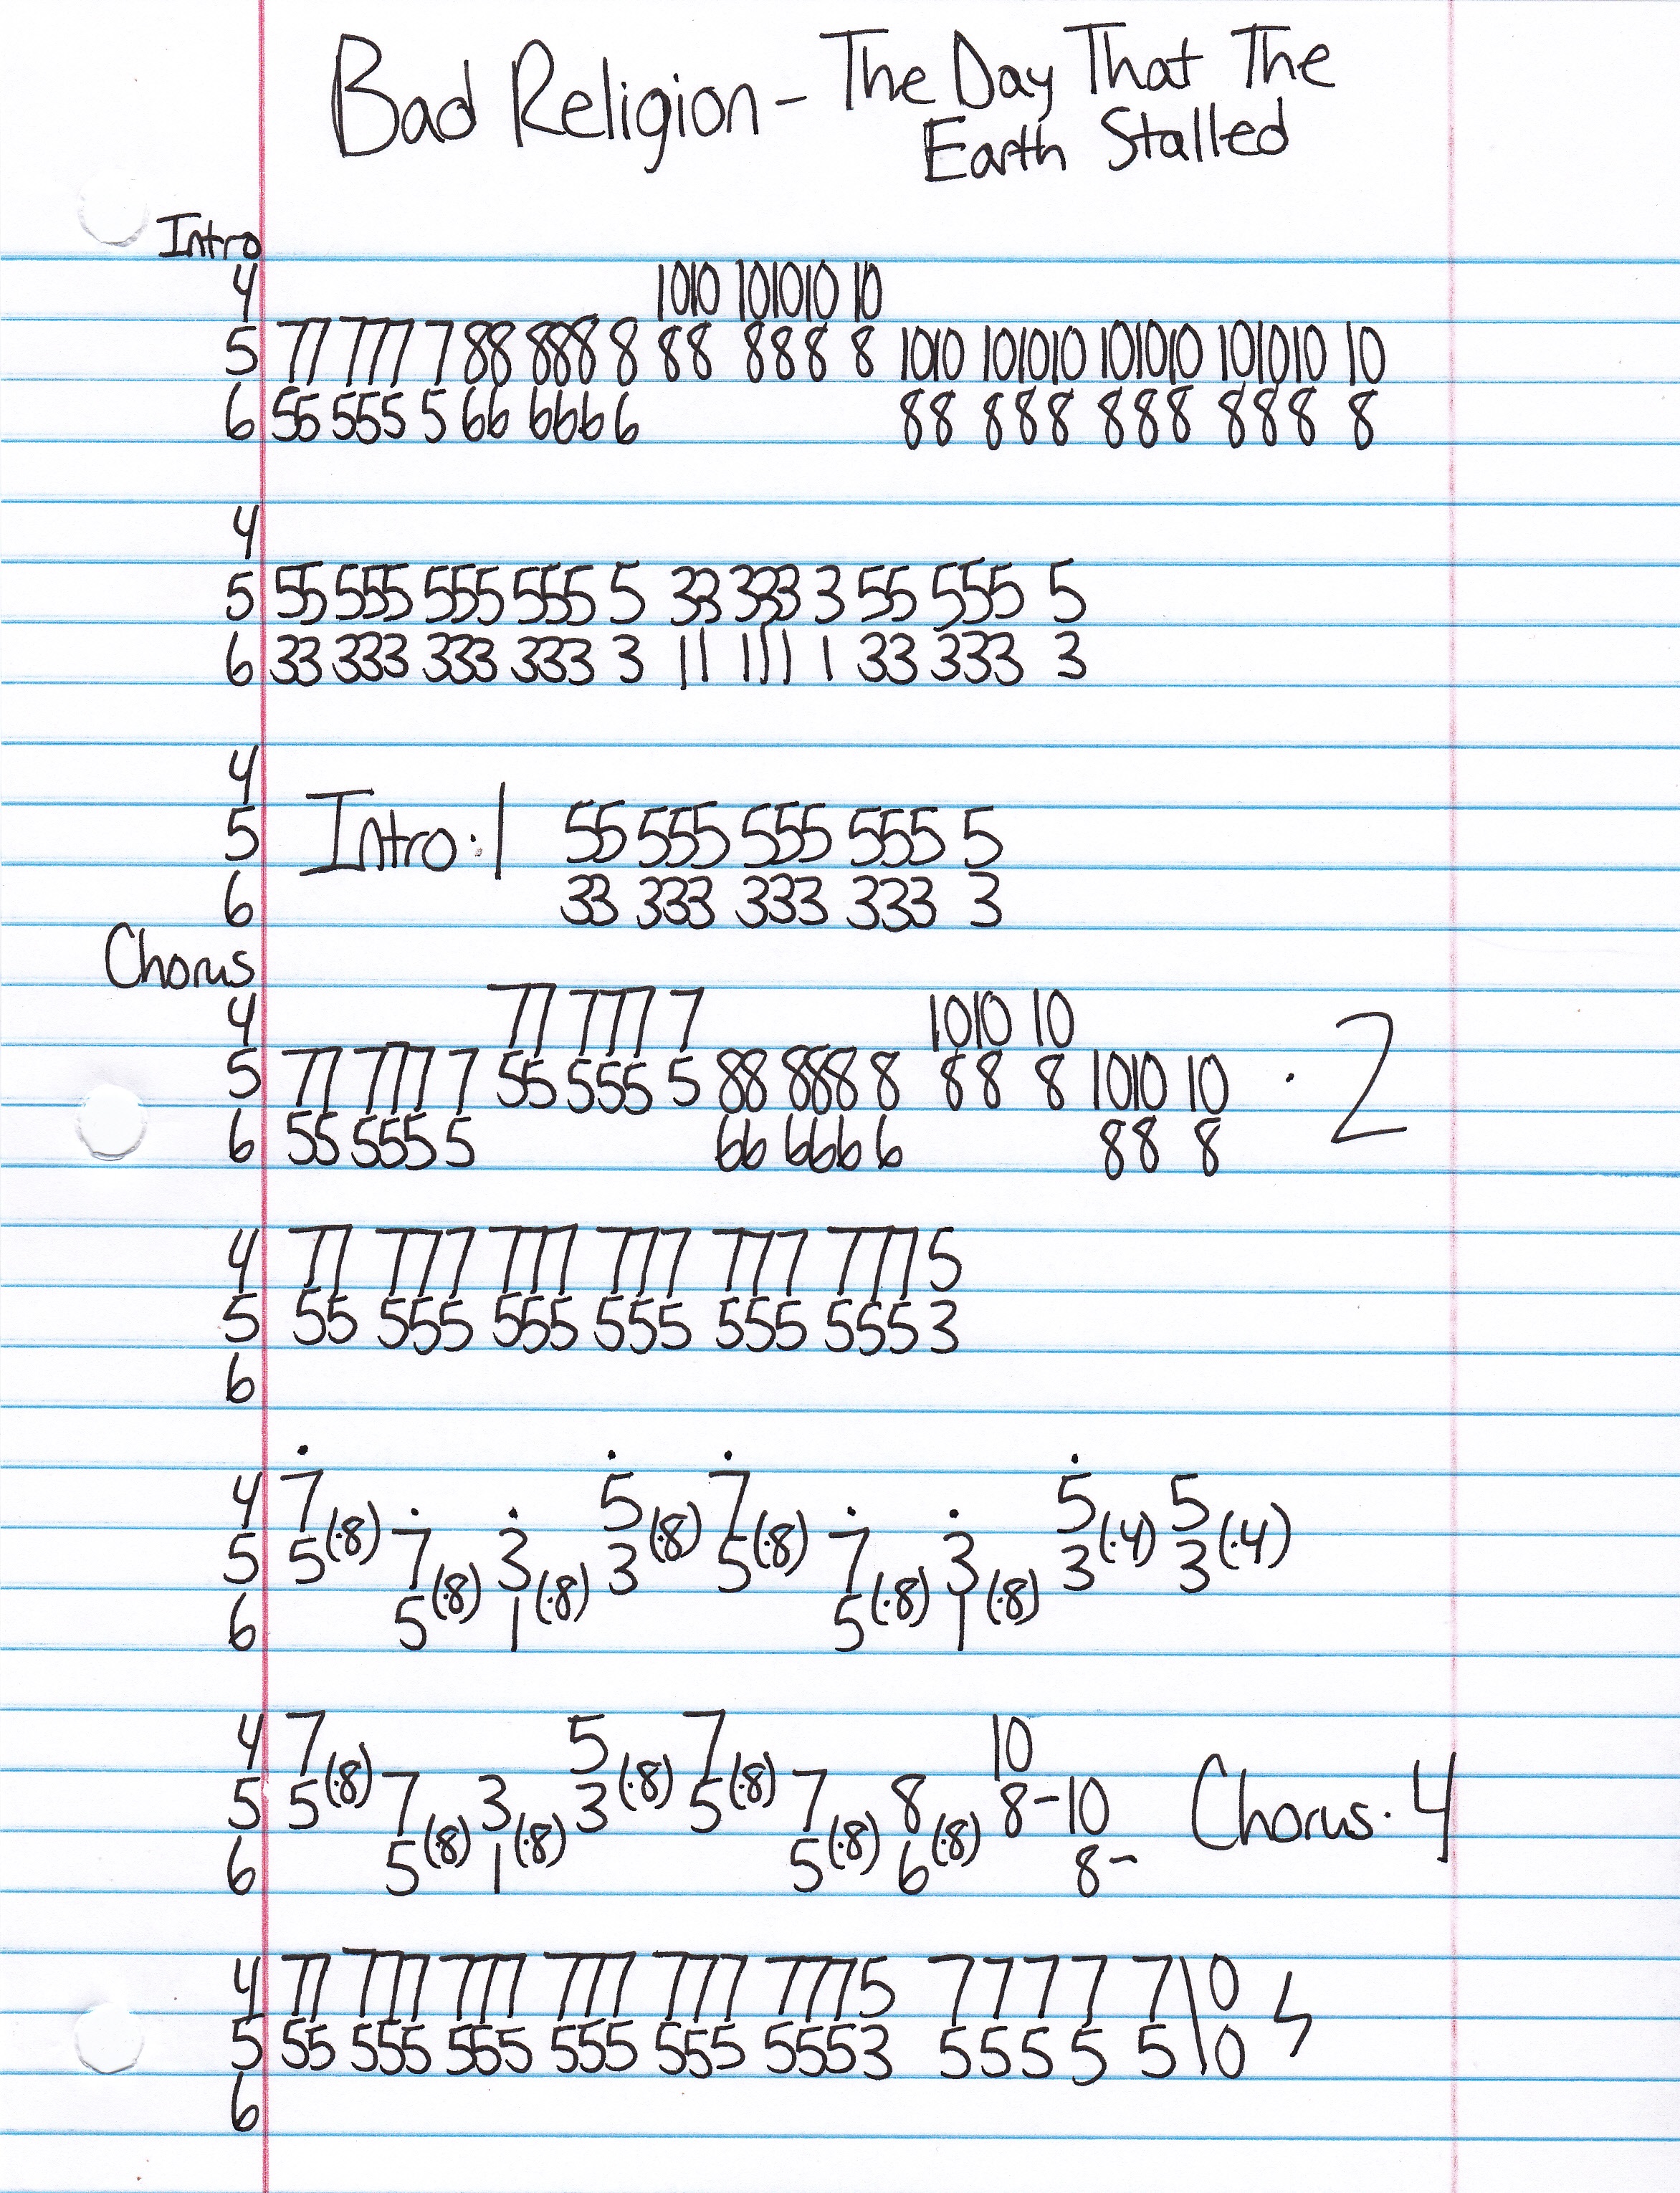 Bad Religion - The Day That The
Earth Stalled
Intro
4 1010 101010 10
5 77 777 7 88 888 8 88 888 8 1010 101010 101010 101010 10
6 55 555 5 66 666 6 88 888 888 888 8
4
5 55 555 555 555 5 33 333 3 55 555 5
6 33 333 333 333 3 11 111 1 33 333 3
4
5 Intro·1 55 555 555 555 5
6 33 333 333 333 3
Chorus
4 77 777 7 1010 10
5 77 777 7 55 555 5 88 888 8 88 8 1010 10 · 2
6 55 555 5 66 666 6 88 8
4 77 777 777 777 777 777 5
5 55 555 555 555 555 555 3
6
4 7 5 7 5 5
5 5(·8) 7 3 3(·8) 5(·8) 7 3 3(·4) 3(·4)
6 5(·8) 1(·8) 5(·8) 1(·8)
4 7 5 7 10
5 5(·8) 7 3 3(·8) 5(·8) 7 8 8-10 Chorus·4
6 5(·8) 1(·8) 5(·8) 6(·8) 8-
4 77 777 777 777 777 777 5 7777 7\0
5 55 555 555 555 555 555 3 5555 5\0
6